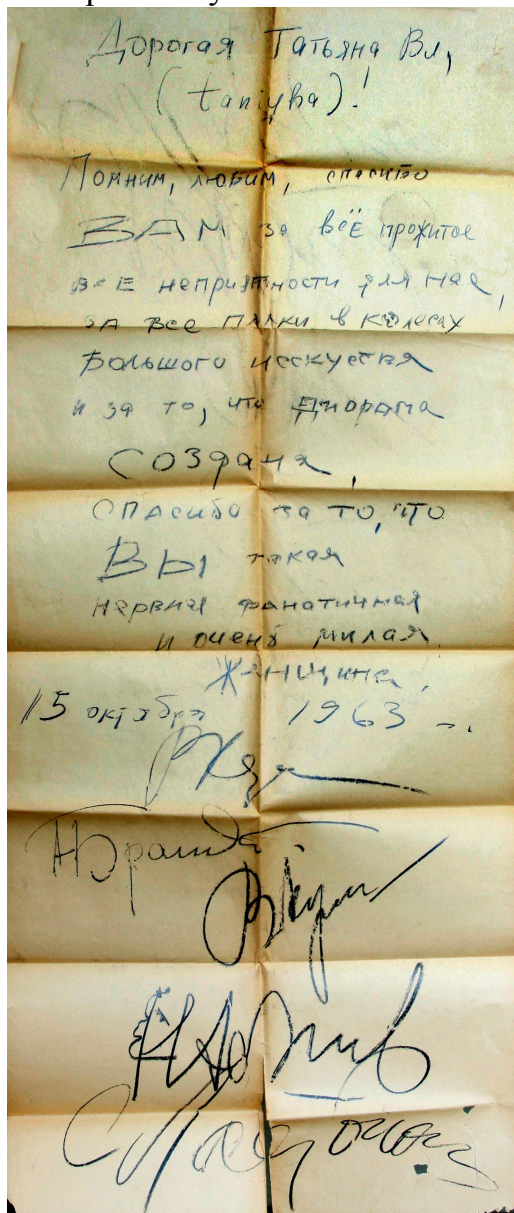 Дорогая Татьяна Вл,
(taniyba)!
Помним, любим, спасибо
ВАМ за всё прожитое
все неприятности для нас,
за все палки в колесах
большого исскуства
и за то, что Диорама
создана,
спасибо за то, что
ВЫ такая
нервная фанатичная
и очень милая
Женщина,
15 октября 1963 г.